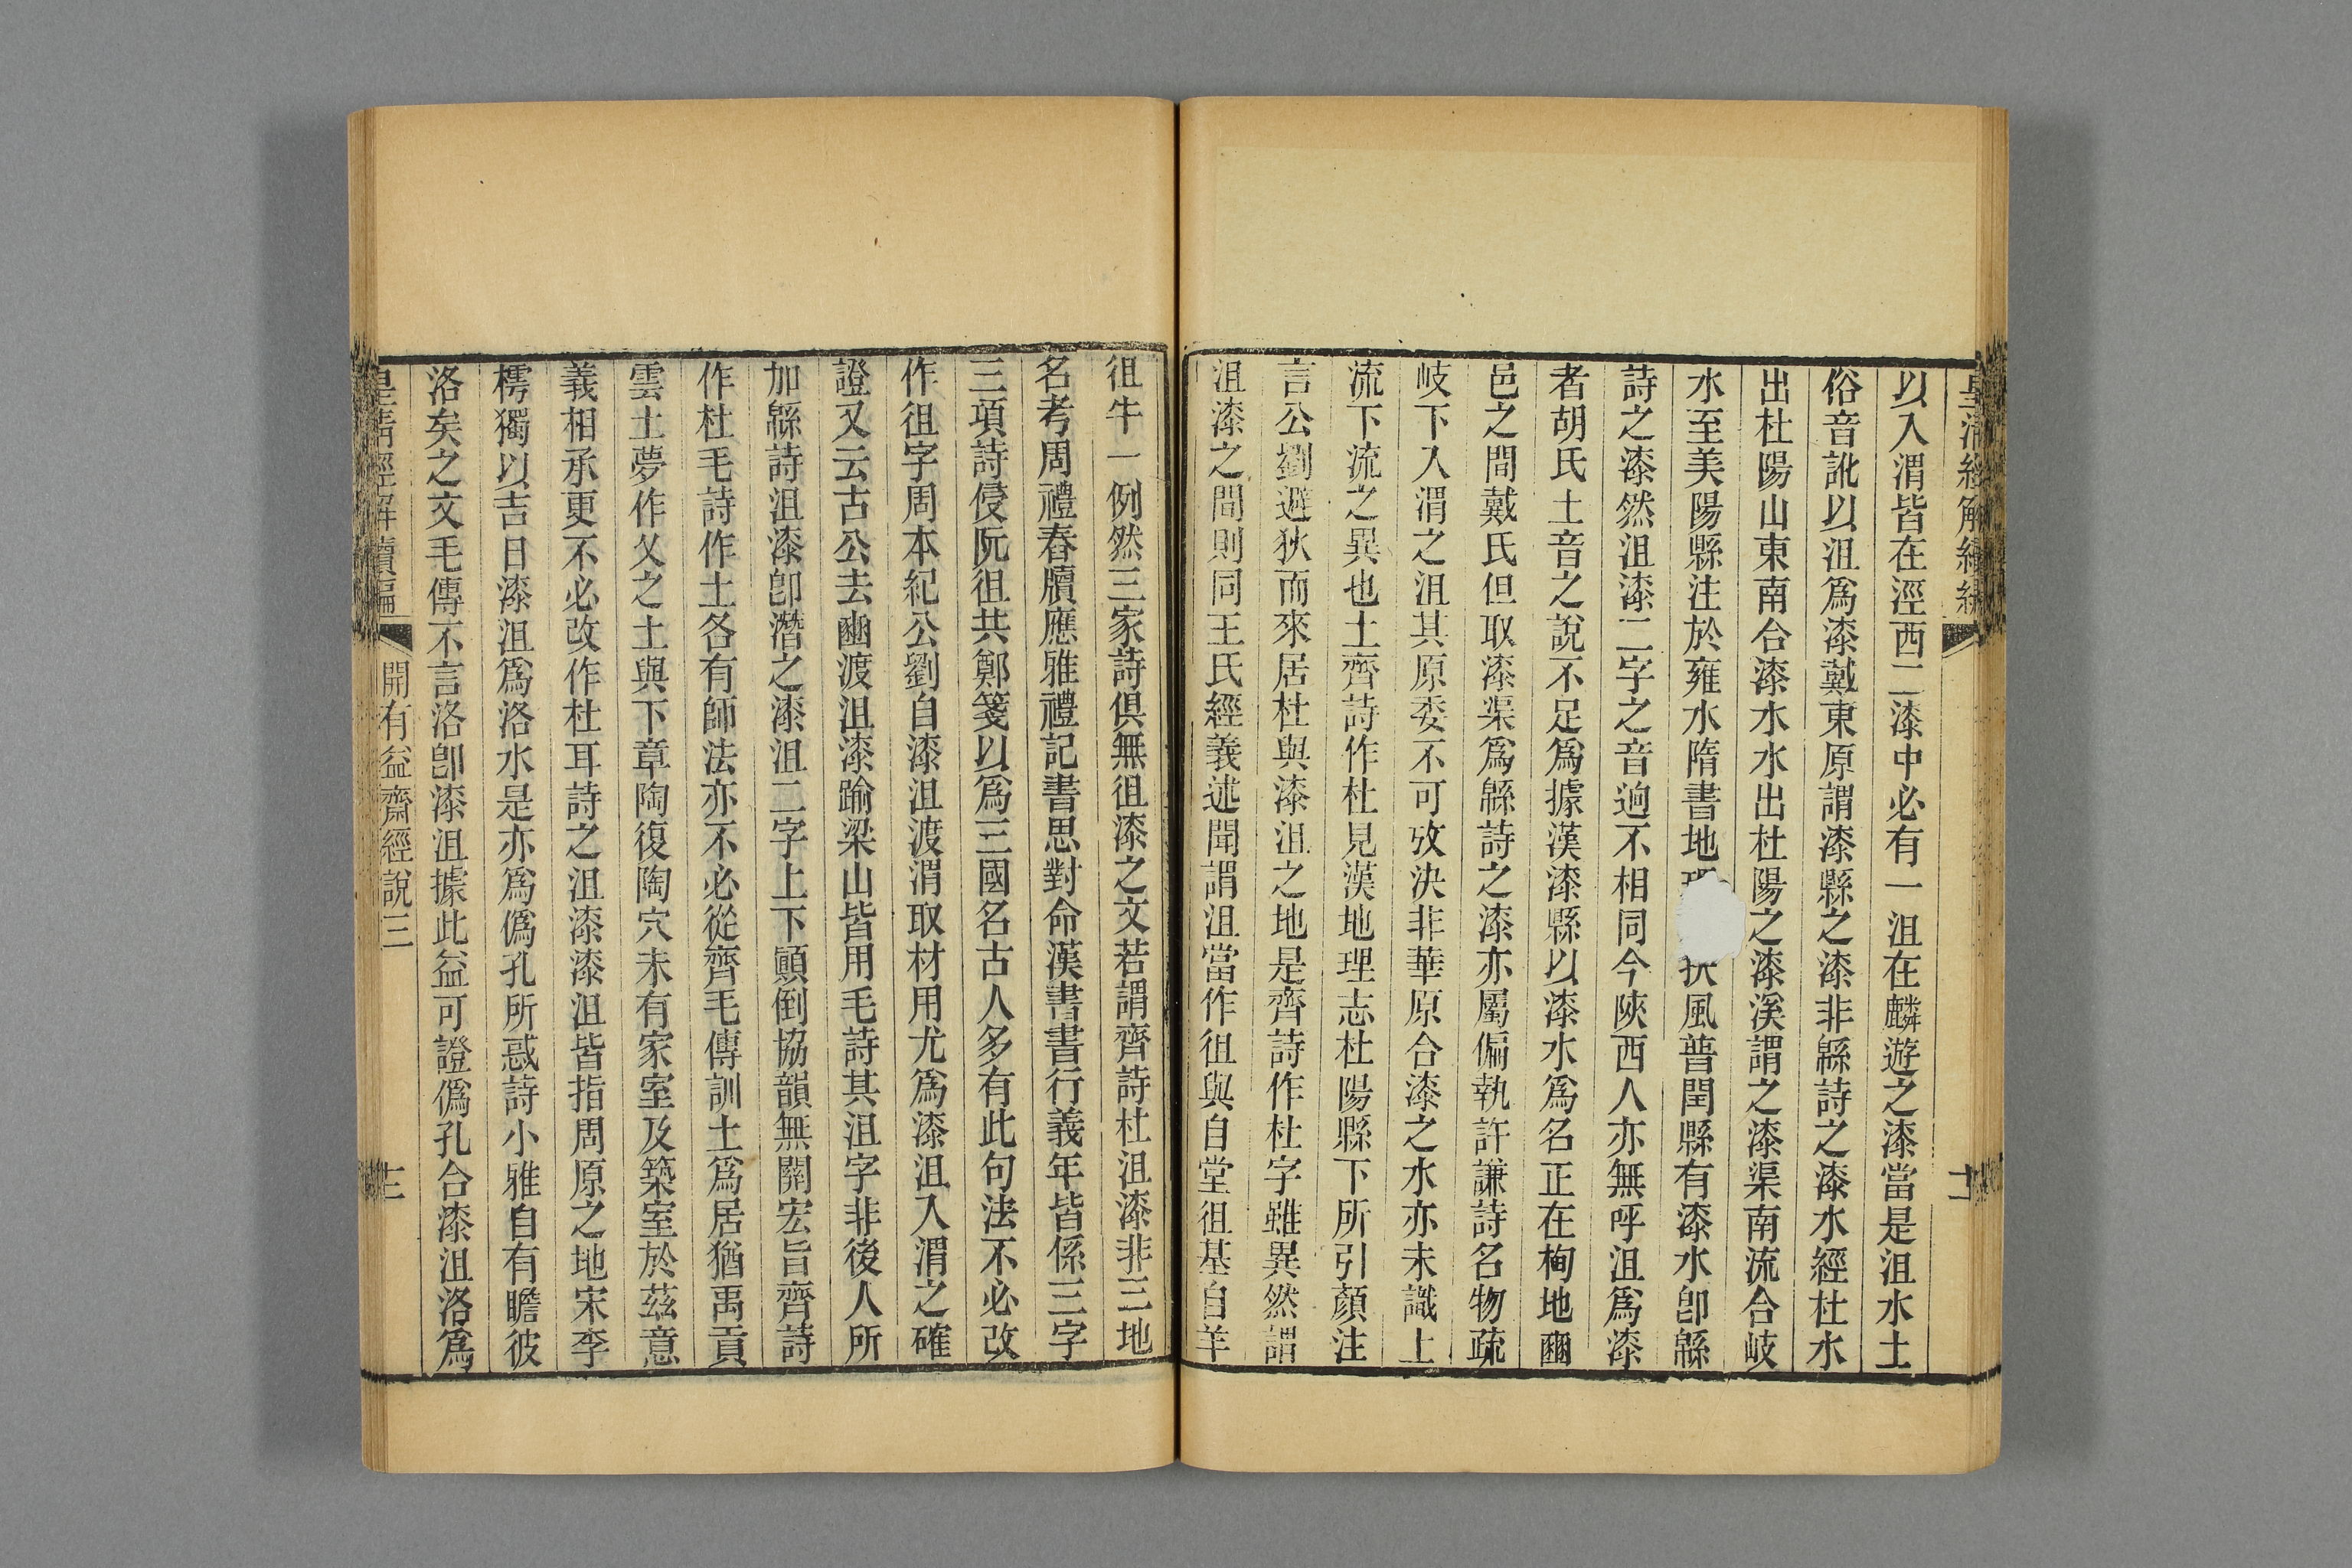 皇清經解續編
十二
以入渭皆在涇西二漆中必有一沮在麟遊之漆當是沮水土
俗音訛以沮爲漆戴東原謂漆縣之漆非緜詩之漆水經杜水
出杜陽山東南合漆水水出杜陽之漆溪謂之漆渠南流合岐
水至美陽縣注於雍水隋書地扶風普閏縣有漆水卽緜
詩之漆然沮漆二字之音逈不相同今陝西人亦無呼沮爲漆
者胡氏土音之說不足爲據漢漆縣以漆水爲名正在栒地豳
邑之間戴氏但取漆渠爲緜詩之漆亦屬偏執許謙詩名物疏
岐下入渭之沮其原委不可攷決非華原合漆之水亦未識上
流下流之異也土齊詩作杜見漢地理志杜陽縣下所引顏注
言公劉避狄而來居杜與漆沮之地是齊詩作杜字雖異然謂
沮漆之間則同王氏經義述聞謂沮當作徂與自堂徂基自羊
徂牛一例然三家詩俱無徂漆之文若謂齊詩杜沮漆非三地
名考周禮舂牘應雅禮記書思對命漢書書行義年皆係三字
三項詩侵阮徂共鄭箋以爲三國名古人多有此句法不必改
作徂字周本紀公劉自漆沮渡渭取材用尤爲漆沮入渭之確
證又云古公去豳渡沮漆踰梁山皆用毛詩其沮字非後人所
加緜詩沮漆卽潛之漆沮二字上下顚倒協韻無關宏旨齊詩
作杜毛詩作土各有師法亦不必從齊毛傳訓土爲居猶禹貢
雲土夢作乂之土與下章陶復陶穴未有家室及築室於茲意
義相承更不必改作杜耳詩之沮漆漆沮皆指周原之地宋李
樗獨以吉日漆沮爲洛水是亦爲僞孔所惑詩小雅自有瞻彼
洛矣之文毛傳不言洛卽漆沮據此益可證僞孔合漆沮洛爲
皇清經解續編
開有益齋經說三
十三